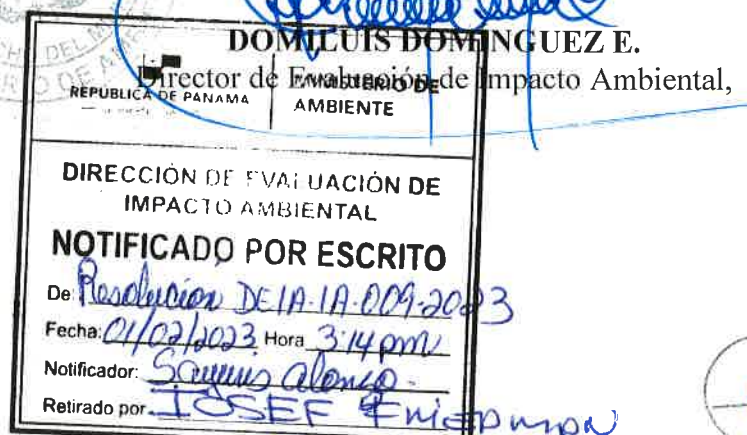 DOMILUIS DOMINGUEZ E.
Director de Evaluación de Impacto Ambiental,
REPÚBLICA DE PANAMÁ
MINISTERIO DE
AMBIENTE
DIRECCIÓN DE EVALUACIÓN DE
IMPACTO AMBIENTAL
NOTIFICADO POR ESCRITO
De: Resolución DEIA-IA-009-2023
Fecha: 01/02/2023 Hora 3:14 pm
Notificador:
Retirado por IOSEF